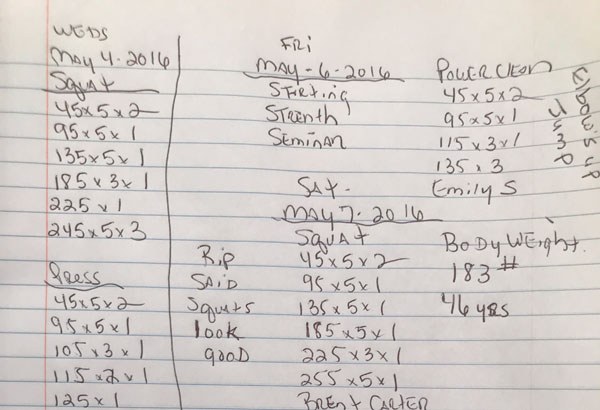 WEDS
MAY 4. 2016
Squat
45x5x2
95x5x1
135x5x1
185x3x1
225x1
245x5x3
Press
45x5x2
95x5x1
105x3x1
115x2x1
125x1
FRi
MAY-6-2016
STArting
STrenth
SEMINAR
SAt.
MAY 7. 2016
SQUAT
45x5x2
95x5x1
135x5x1
185x5x1
225x3x1
255x5x1
BRENT CARTER
Rip
SAiD
Squats
look
gooD
POWER CLEAN
45x5x2
95x5x1
115x3x1
135x3
Emily S
Elbows up
BODY WEight.
183#
46 yrs